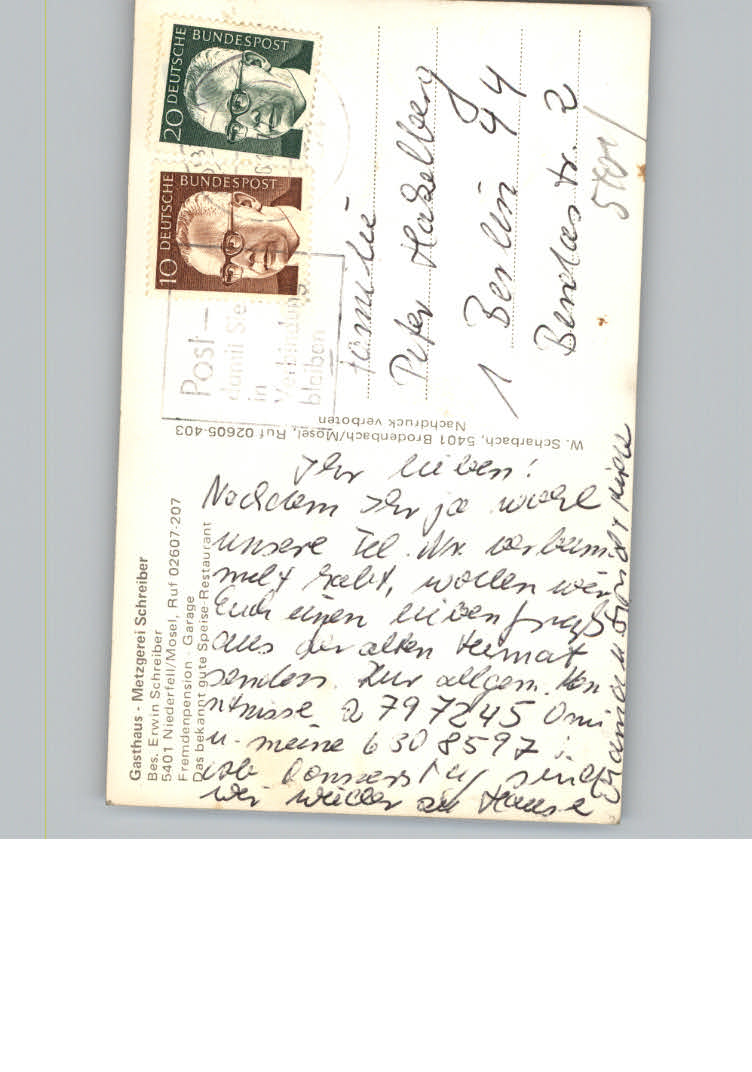 Gasthaus - Metzgerei Schreiber
Bes. Erwin Schreiber
5401 Niederfell/Mosel, Ruf 02607-207
Fremdenpension - Garage
Das bekannt gute Speise-Restaurant
Ihr lieben!
Nachdem Ihr ja wohl
unsere Tel. Nr. verbum-
melt habt, wollen wir
Euch einen lieben Gruß
aus der alten Heimat
senden. Zur allgem. Ken
ntnisse 2 797245 Omi
u. meine 6 30 8597
ab Donnerstag sind
wir wieder zu Hause
W. Scharbach, 5401 Brodenbach/Mosel, Ruf 02605-403
Nachdruck verboten
20 DEUTSCHE BUNDESPOST
10 DEUTSCHE BUNDESPOST
Post –
damit Sie
in
Verbindung
bleiben
Familie
Peter Hakelberg
1 Berlin 44
str. 2